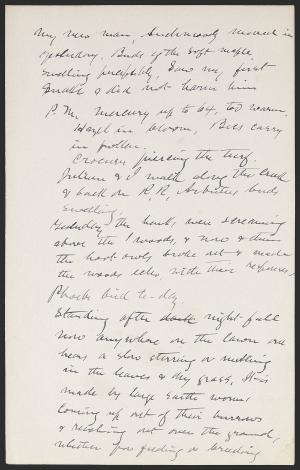 My new man, Anderson, moved in
yesterday. Buds of the soft maple
swelling perceptibly, Saw my first
snake & did not harm him
P.M. Mercury up to 64, too warm.
Hazel in bloom, Bees carry
in pollen.
Crocuses piercing the turf.
Julian & I walk along the creek
& back on R.R. Arbutus buds
swelling.
Yesterday the hawks were screaming
above the woods, & now & then
the hoot owls broke out & made
the woods echo, with their responses,
Phoebe bird to-day.
Standing after dark night-fall
now anywhere on the lawn one
hears a slow stirring or rustling
in the leaves & dry grass, It is
made by large Earth worms
coming up out of their burrows
& reaching out over the ground,
whether for feeding or breeding